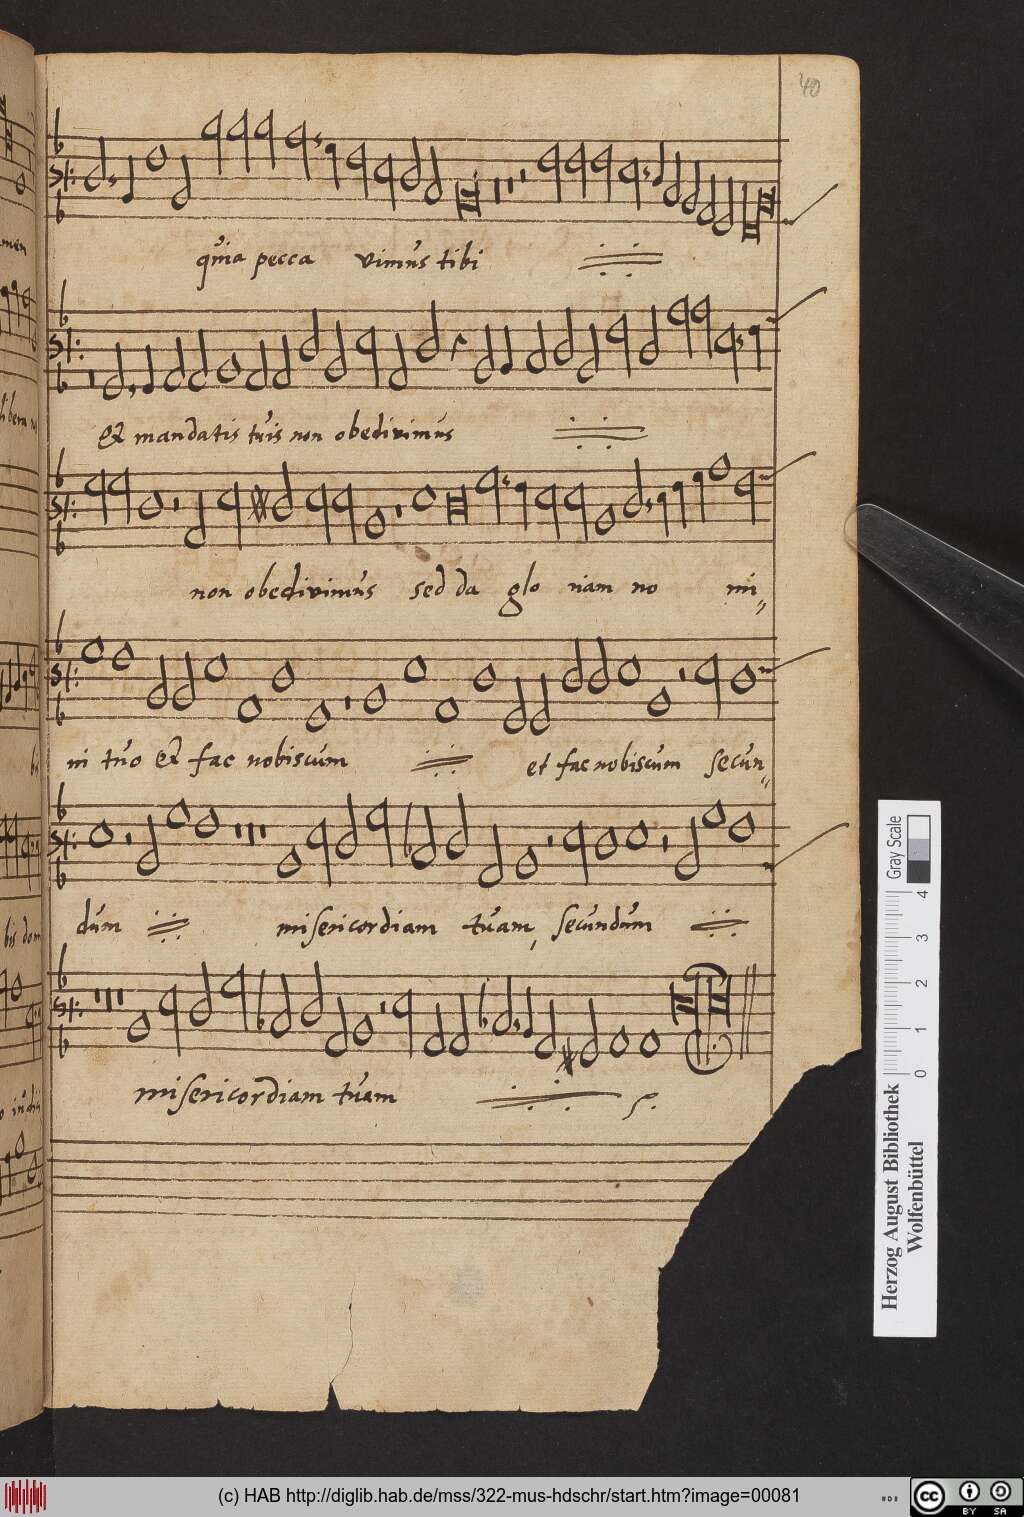 40
quia pecca vimus tibi
Et mandatis tuis non obedivimus
non obedivimus sed da glo riam no mi
ni tuo Et fac nobiscum et fac nobiscum secun
dum misericordiam tuam, secundum
misericordiam tuam
Gray Scale
0 1 2 3 4
Herzog August Bibliothek
Wolfenbüttel
(c) HAB http://diglib.hab.de/mss/322-mus-hdschr/start.htm?image=00081
cc BY SA